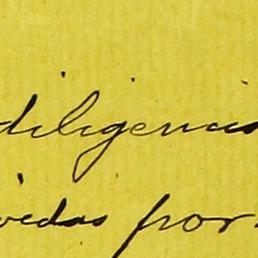 diligencia
vedas por